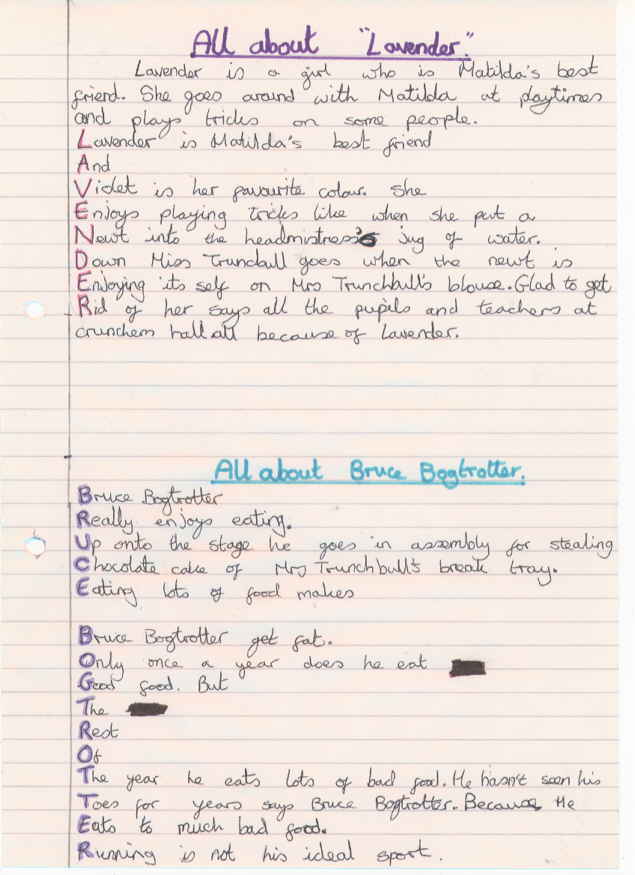 All about "Lavender."
Lavender is a girl who is Matilda's best
friend. She goes around with Matilda at playtimes
and plays tricks on some people.
Lavender is Matilda's best friend
And
Violet is her favourite colour. She
Enjoys playing tricks like when she put a
Newt into the headmistress's jug of water.
Down Miss Trunchall goes when the newt is
Enjoying its self on Mrs Trunchbull's blouse. Glad to get
Rid of her says all the pupils and teachers at
crunchem hall all because of Lavender.
All about Bruce Bogtrotter.
Bruce Bogtrotter
Really enjoys eating.
Up onto the stage he goes in assembly for stealing
Chocolate cake of Mrs Trunchbull's break tray.
Eating lots of food makes
Bruce Bogtrotter get fat.
Only once a year does he eat
Good food. But
The
Rest
Of
The year he eats lots of bad food. He hasn't seen his
Toes for years says Bruce Bogtrotter. Because He
Eats to much bad food.
Running is not his ideal sport.